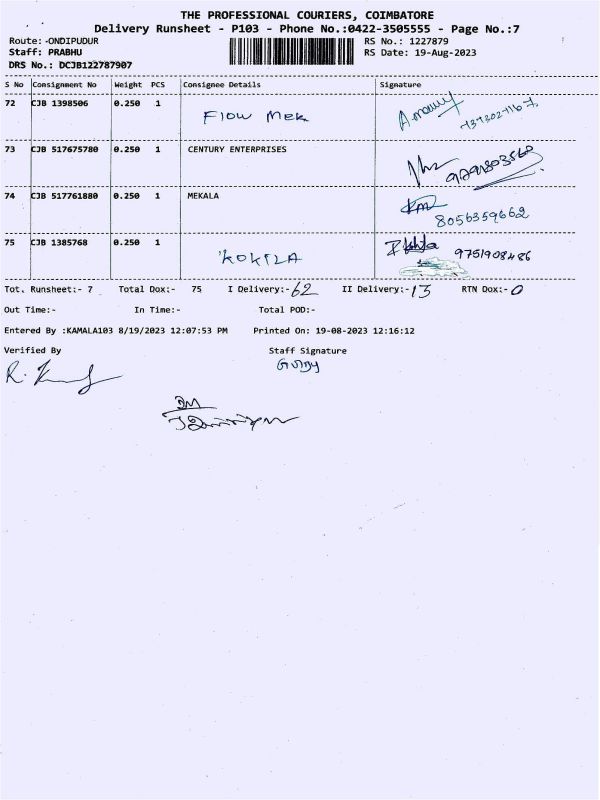 THE PROFESSIONAL COURIERS, COIMBATORE
Delivery Runsheet - P103 - Phone No.:0422-3505555 - Page No.:7
Route: -ONDIPUDUR RS No.: 1227879
Staff: PRABHU RS Date: 19-Aug-2023
DRS No.: DCJB122787907
S No Consignment No Weight PCS Consignee Details Signature
72 CJB 1398506 0.250 1 Flow Mek
73 CJB 517675780 0.250 1 CENTURY ENTERPRISES
74 CJB 517761880 0.250 1 MEKALA
8056359662
75 CJB 1385768 0.250 1 KOKILA 9751908486
Tot. Runsheet:- 7 Total Dox:- 75 I Delivery:- 62 II Delivery:- 13 RTN Dox:- 0
Out Time:- In Time:- Total POD:-
Entered By :KAMALA103 8/19/2023 12:07:53 PM Printed On: 19-08-2023 12:16:12
Verified By Staff Signature